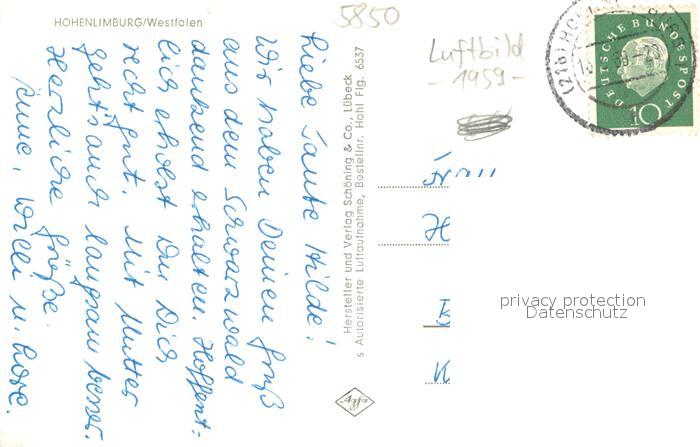 HOHENLIMBURG/Westfalen
5850
Luftbild
- 1959 -
DEUTSCHE BUNDESPOST
10
Liebe Tante Hilde!
Wir haben Deinen Gruß
aus dem Schwarzwald
dankend erhalten. Hoffent-
lich erholst Du Dich
recht gut. Mit Mutter
geht's auch langsam besser.
Herzliche Grüße
Änne, Willi u. Lore.
Hersteller und Verlag Schöning & Co., Lübeck
s Autorisierte Luftaufnahme, Bestellnr. Hohl Flg. 6537
Frau
H
B
privacy protection
Datenschutz